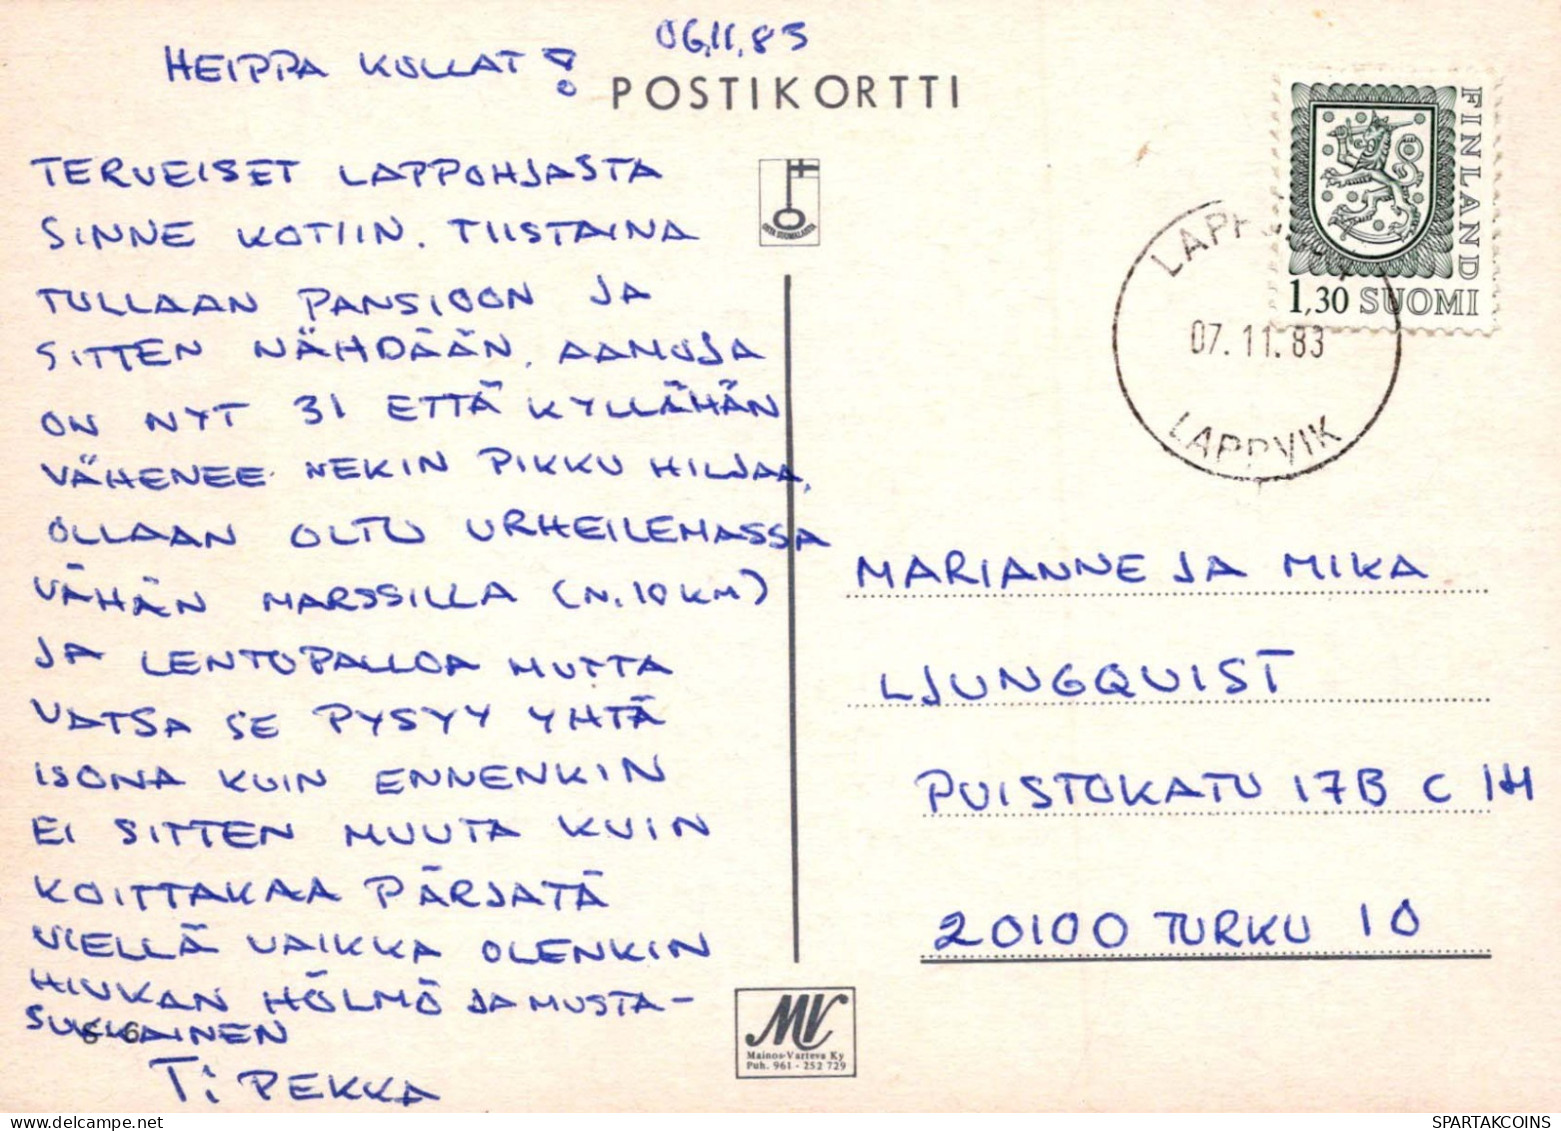 06.11.83
HEIPPA KULLAT!
POSTIKORTTI
TERVEISET LAPPOHJASTA
SINNE KOTIIN. TIISTAINA
TULLAAN PANSIOON JA
SITTEN NÄHDÄÄN. AAMUJA
ON NYT 31 ETTÄ KYLLÄHÄN
VÄHENEE NEKIN PIKKU HILJAA.
OLLAAN OLTU URHEILEMASSA
VÄHÄN MARSSILLA (N. 10 KM)
JA LENTOPALLOA MUTTA
VATSA SE PYSYY YHTÄ
ISONA KUIN ENNENKIN
EI SITTEN MUUTA KUIN
KOITTAKAA PÄRJÄTÄ
VIELLÄ VAIKKA OLENKIN
HIUKAN HÖLMÖ JA MUSTA-
SUKKAINEN
Ti PEKKA
OSTA SUOMALAISTA
FINLAND
1,30 SUOMI
07.11.83
LAPPVIK
MARIANNE JA MIKA
LJUNGQUIST
PUISTOKATU 17B C 14
20100 TURKU 10
MV
Mainos-Varteva Ky
Puh. 961 - 252 729
SPARTAKCOINS